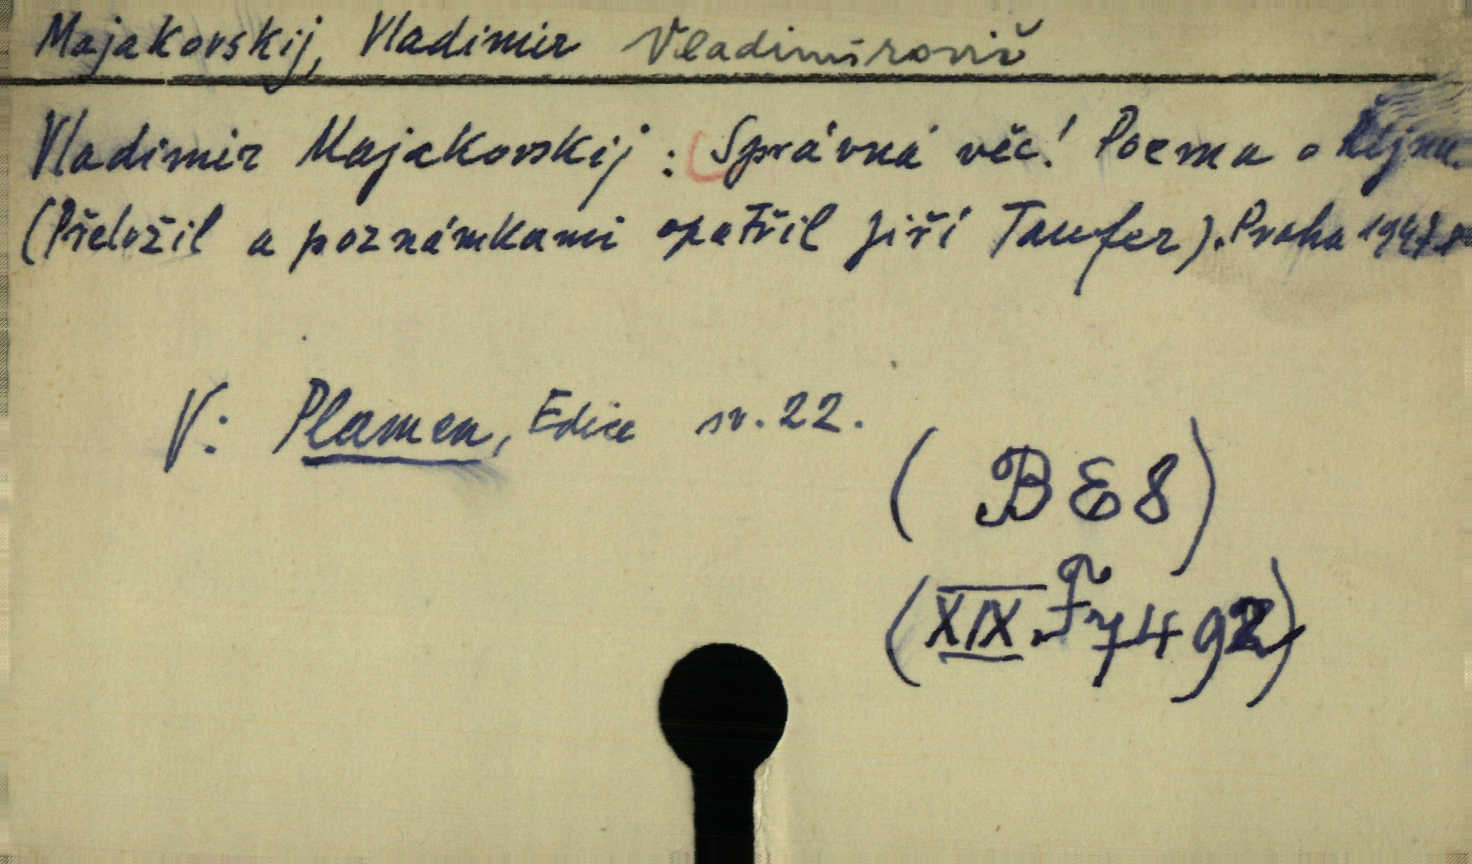 Majakovskij, Vladimir Vladimirovič
Vladimir Majakovskij: Správná věc! Poema o Říjnu.
(Přeložil a poznámkami opatřil Jiří Taufer). Praha
V: Plamen, Edice sv. 22.
(BE8)
(XIX F 7492)